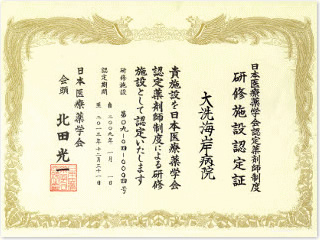 日本医療薬学会認定薬剤師制度
研修施設認定証
大洗海岸病院
貴施設を日本医療薬学会
認定薬剤師制度による研修
施設として認定いたします
研修施設 第〇九-〇四-〇〇四号
認定期間 自 二〇〇九年 一月 一日
至 二〇一三年十二月三十一日
日本医療薬学会
会頭 北田光一